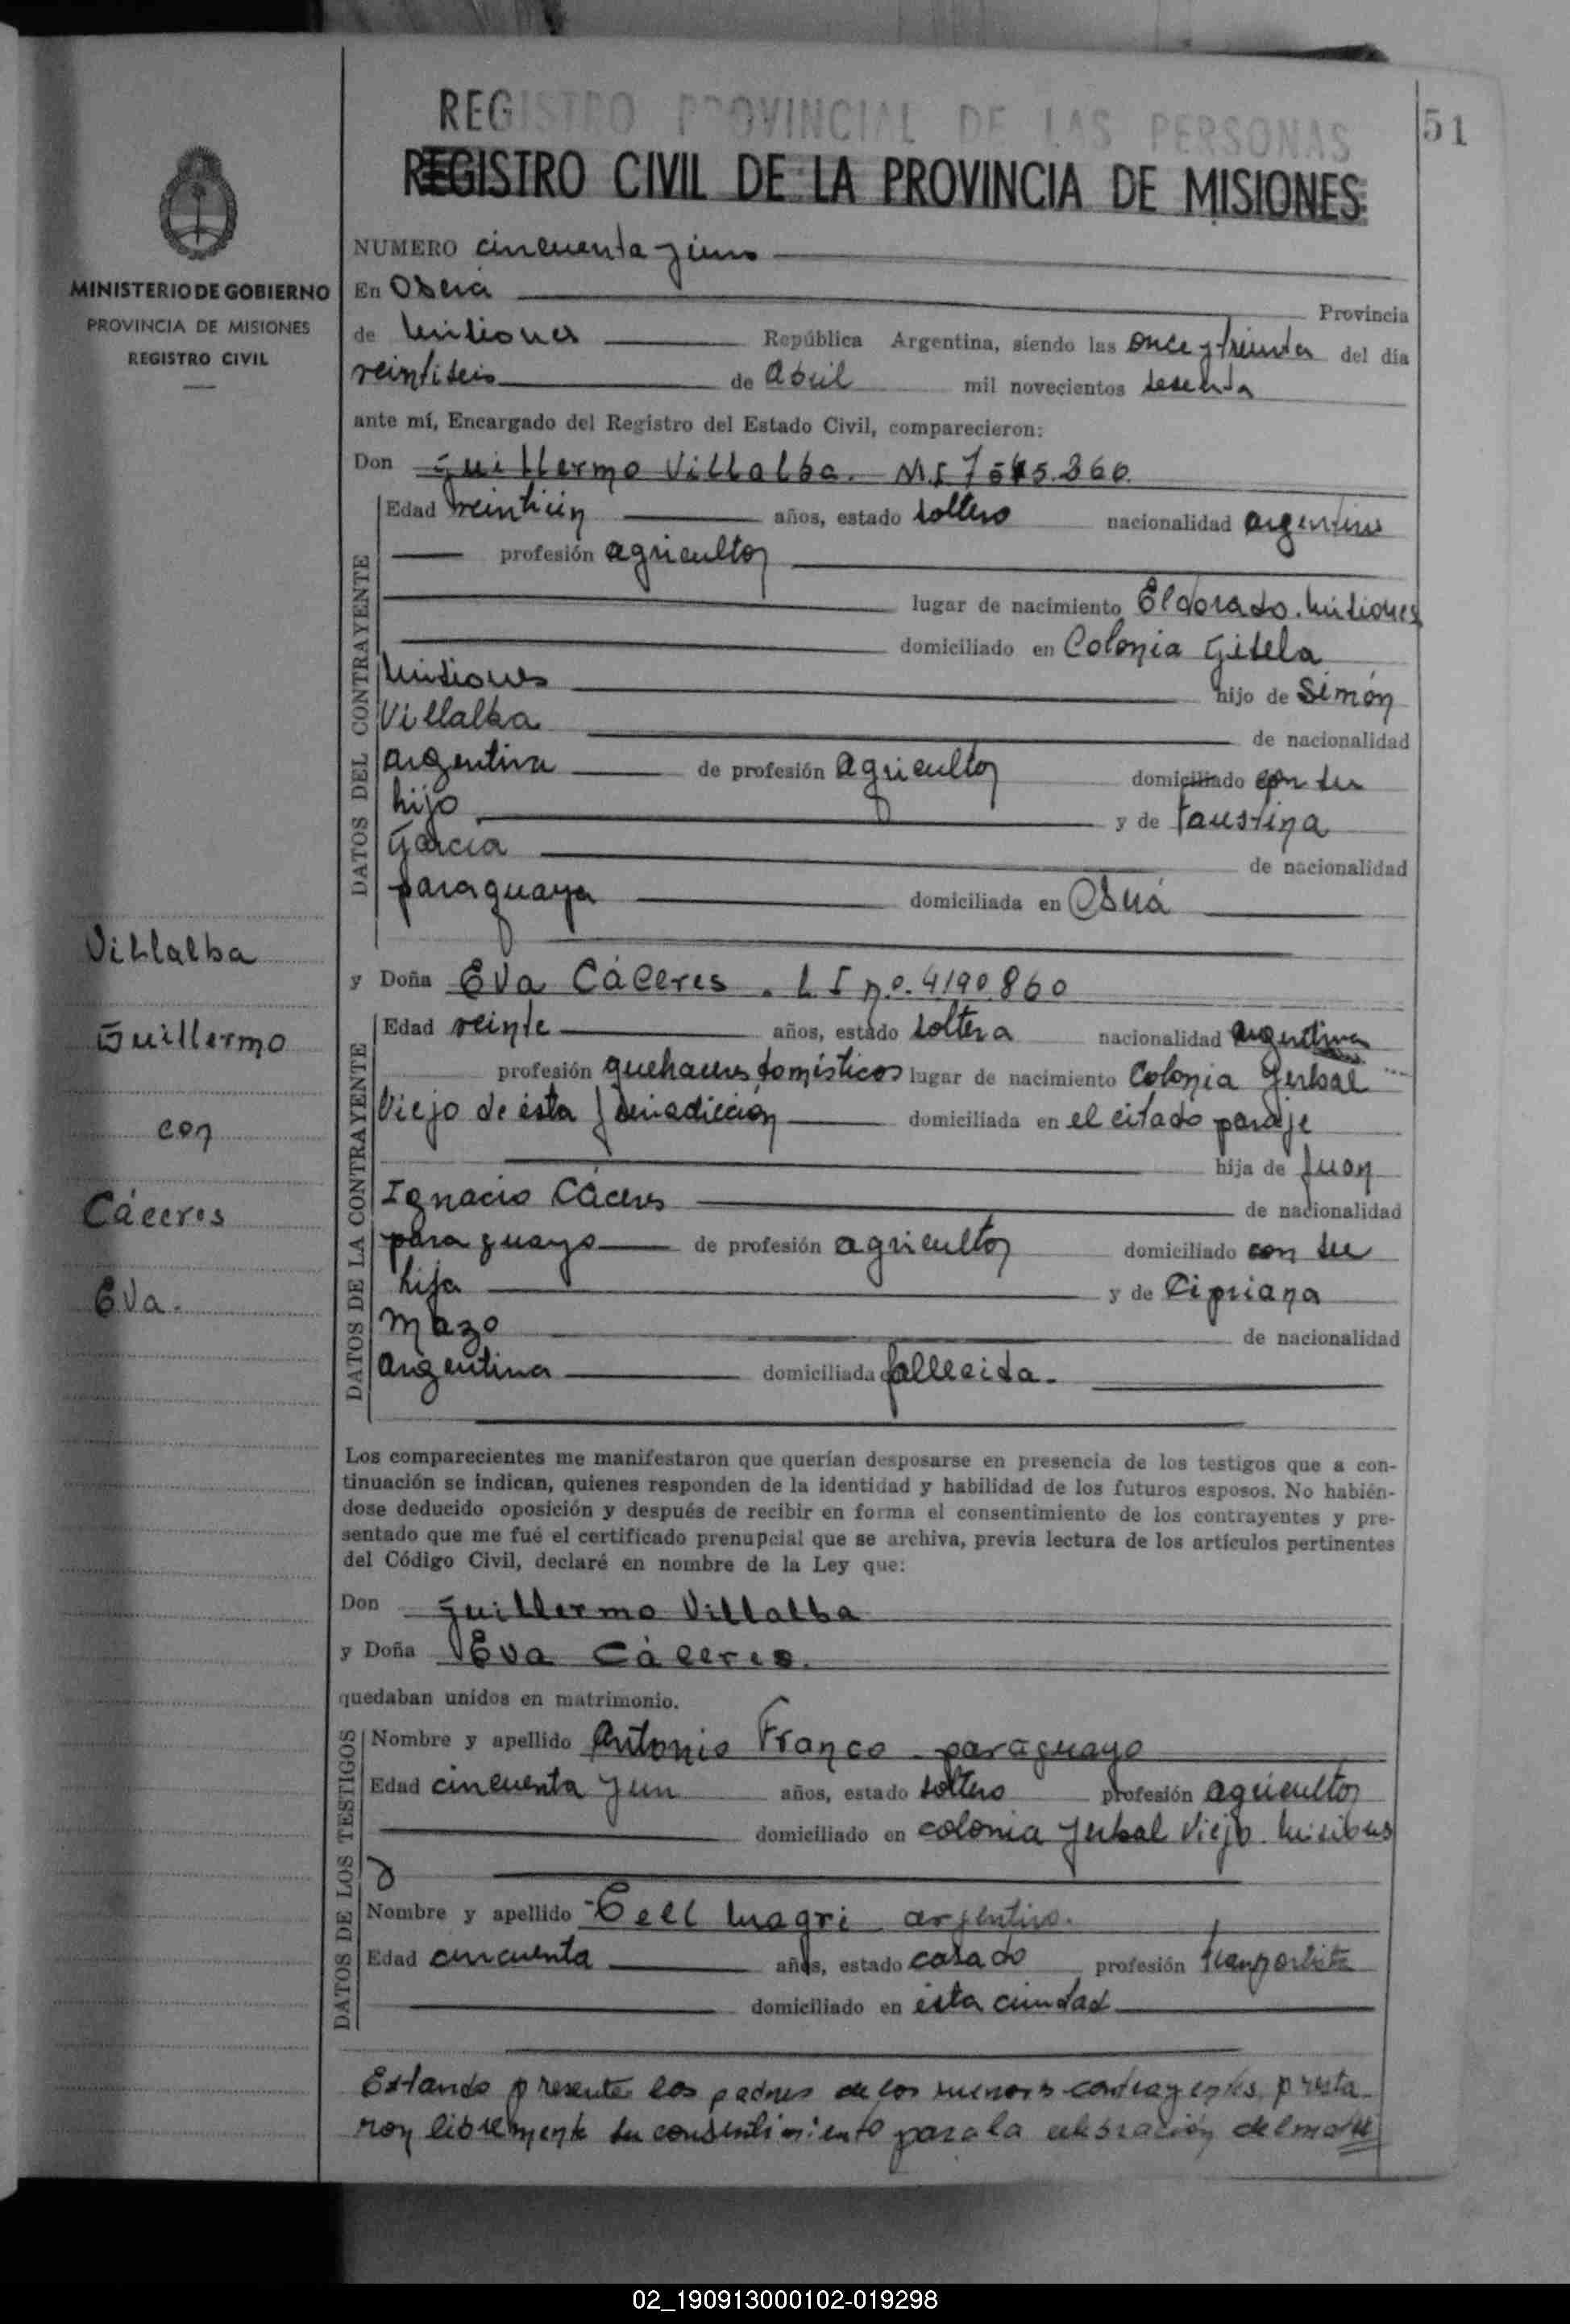 REGISTRO PROVINCIAL DE LAS PERSONAS
51
REGISTRO CIVIL DE LA PROVINCIA DE MISIONES
MINISTERIO DE GOBIERNO
PROVINCIA DE MISIONES
REGISTRO CIVIL
Villalba
Guillermo
con
Cáceres
Eva.
NUMERO cincuenta y uno
En Oberá Provincia
de Misiones República Argentina, siendo las once y treinta del día
veintiseis de Abril mil novecientos sesenta
ante mí, Encargado del Registro del Estado Civil, comparecieron:
Don Guillermo Villalba. M.I 7.545.360.
DATOS DEL CONTRAYENTE
Edad años, estado soltero nacionalidad argentino
profesión agricultor
lugar de nacimiento Eldorado. Misiones
domiciliado en Colonia Gisela
Misiones hijo de Simón
Villalba de nacionalidad
argentina de profesión agricultor domiciliado con su
hijo y de Faustina
García de nacionalidad
paraguaya domiciliada en Oberá
y Doña Eva Cáceres. L I nº. 4.190.860
DATOS DE LA CONTRAYENTE
Edad veinte años, estado soltera nacionalidad argentina
profesión quehaceres domésticos lugar de nacimiento Colonia Yerbal
Viejo de ésta Jurisdicción domiciliada en el citado paraje
hija de Juan
Ignacio Cáceres de nacionalidad
paraguayo de profesión agricultor domiciliado con su
hija y de Cipriana
Mazo de nacionalidad
argentina domiciliada fallecida.
Los comparecientes me manifestaron que querían desposarse en presencia de los testigos que a con-
tinuación se indican, quienes responden de la identidad y habilidad de los futuros esposos. No habién-
dose deducido oposición y después de recibir en forma el consentimiento de los contrayentes y pre-
sentado que me fué el certificado prenupcial que se archiva, previa lectura de los artículos pertinentes
del Código Civil, declaré en nombre de la Ley que:
Don Guillermo Villalba
y Doña Eva Cáceres.
quedaban unidos en matrimonio.
DATOS DE LOS TESTIGOS
Nombre y apellido Antonio Franco paraguayo
Edad cincuenta y un años, estado soltero profesión agricultor
domiciliado en colonia Yerbal Viejo. Misiones
Nombre y apellido argentino.
Edad cincuenta años, estado casado profesión transportista
domiciliado en ésta ciudad
Estando presente los padres de los menores contrayentes, presta-
ron libremente su consentimiento para la celebración del matri
02_190913000102-019298